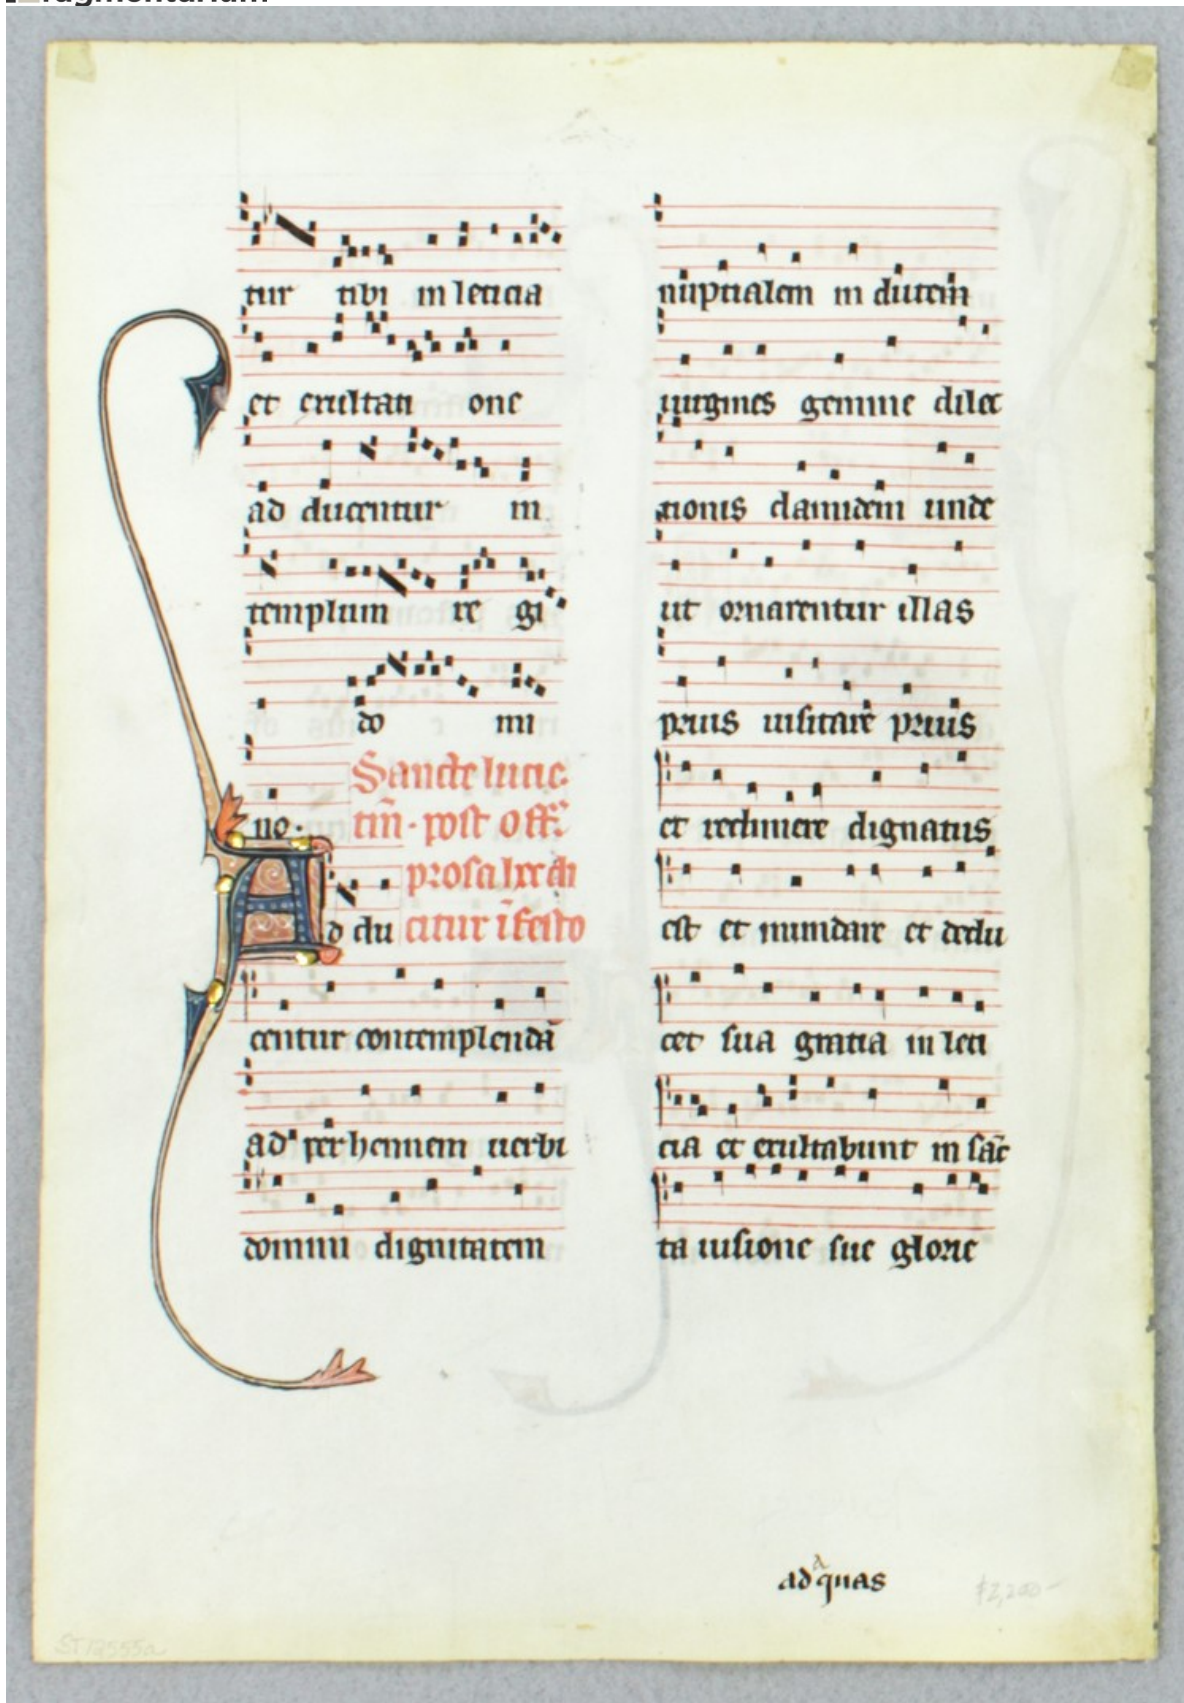 tur tibi in leticia
et exultati one
ad ducentur in
templum re gi
do mi
no.
Sancte lucie.
tm̄. post off.
prosa
citur ī festo
Ad du
centur contemplendā
ad perhennem uerbi
domini dignitatem
nuptialem in
uirgines gemine dilec
tionis clamidem unde
ut ornarentur illas
prius uisitare prius
et redimere dignatus
est et mundare et dedu
cet sua gratia in leti
cia et exultabunt in sāc
ta uisione sue glorie
ad quas
ST12555a